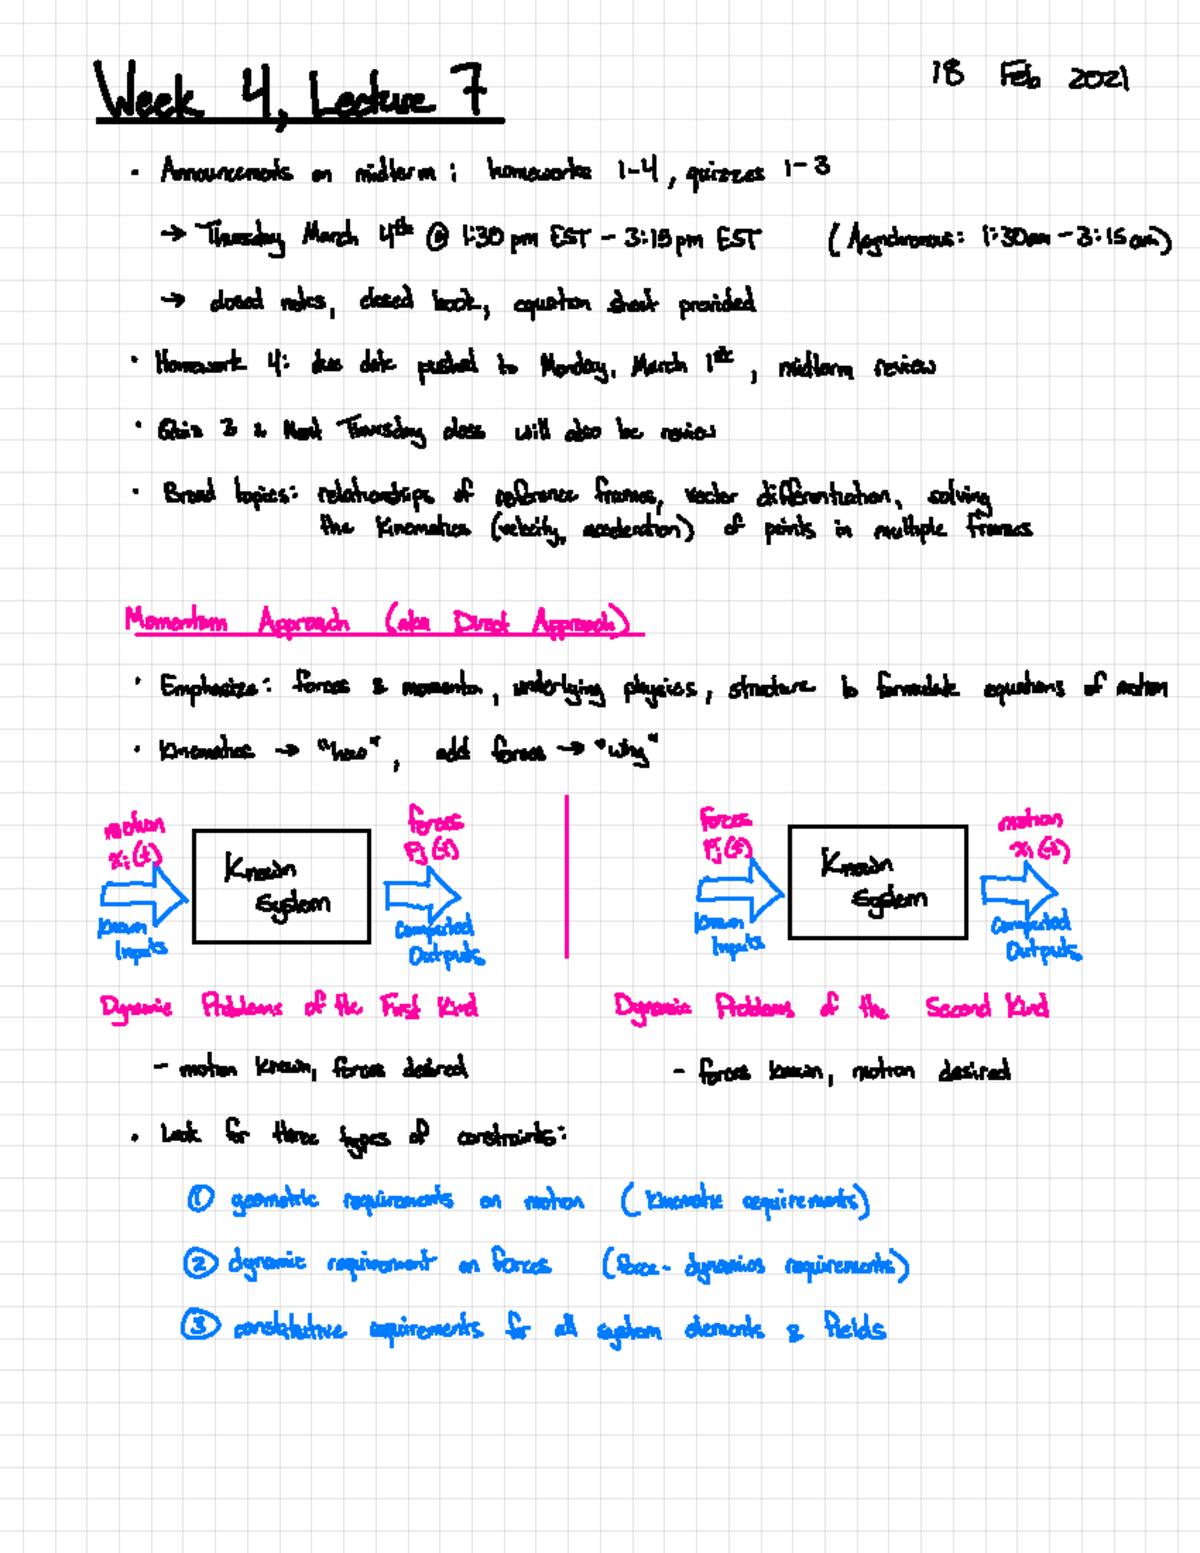 Week 4, Lecture 7
18 Feb 2021
· Announcements on midterm: homeworks 1-4, quizzes 1-3
→ Thursday March 4th @ 1:30 pm EST - 3:15 pm EST (Asynchronous: 1:30am - 3:15am)
→ closed notes, closed book, equation sheet provided
· Homework 4: due date pushed to Monday, March 1st, midterm review
· Quiz 3 & Next Thursday class will also be review
· Broad topics: relationships of reference frames, vector differentiation, solving
the kinematics (velocity, acceleration) of points in multiple frames
Momentum Approach (aka Direct Approach)
· Emphasize: forces & momenta, underlying physics, structure to formulate equations of motion
· Kinematics → "how", add forces → "why"
motion
xi(t)
Known
Inputs
Known
System
forces
Fj(t)
Computed
Outputs
Dynamic Problems of the First Kind
- motion known, forces desired
forces
Fj(t)
Known
Inputs
Known
System
motion
xi(t)
Computed
Outputs
Dynamic Problems of the Second Kind
- forces known, motion desired
· Look for three types of constraints:
① geometric requirements on motion (kinematic requirements)
② dynamic requirement on forces (force-dynamics requirements)
③ constitutive requirements for all system elements & fields